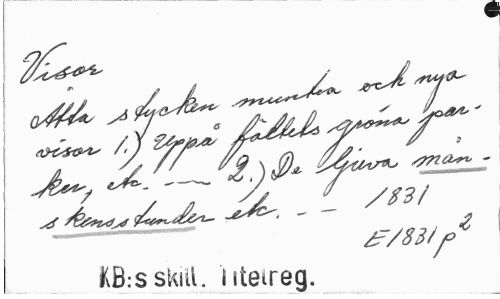 Visor
Åtta stycken muntra och nya
visor 1.) Uppå fältets gröna par-
ker, etc. — — 2.) De ljuva mån-
skensstunder etc. - - 1831
E1831 p²
KB:s skill. Titelreg.